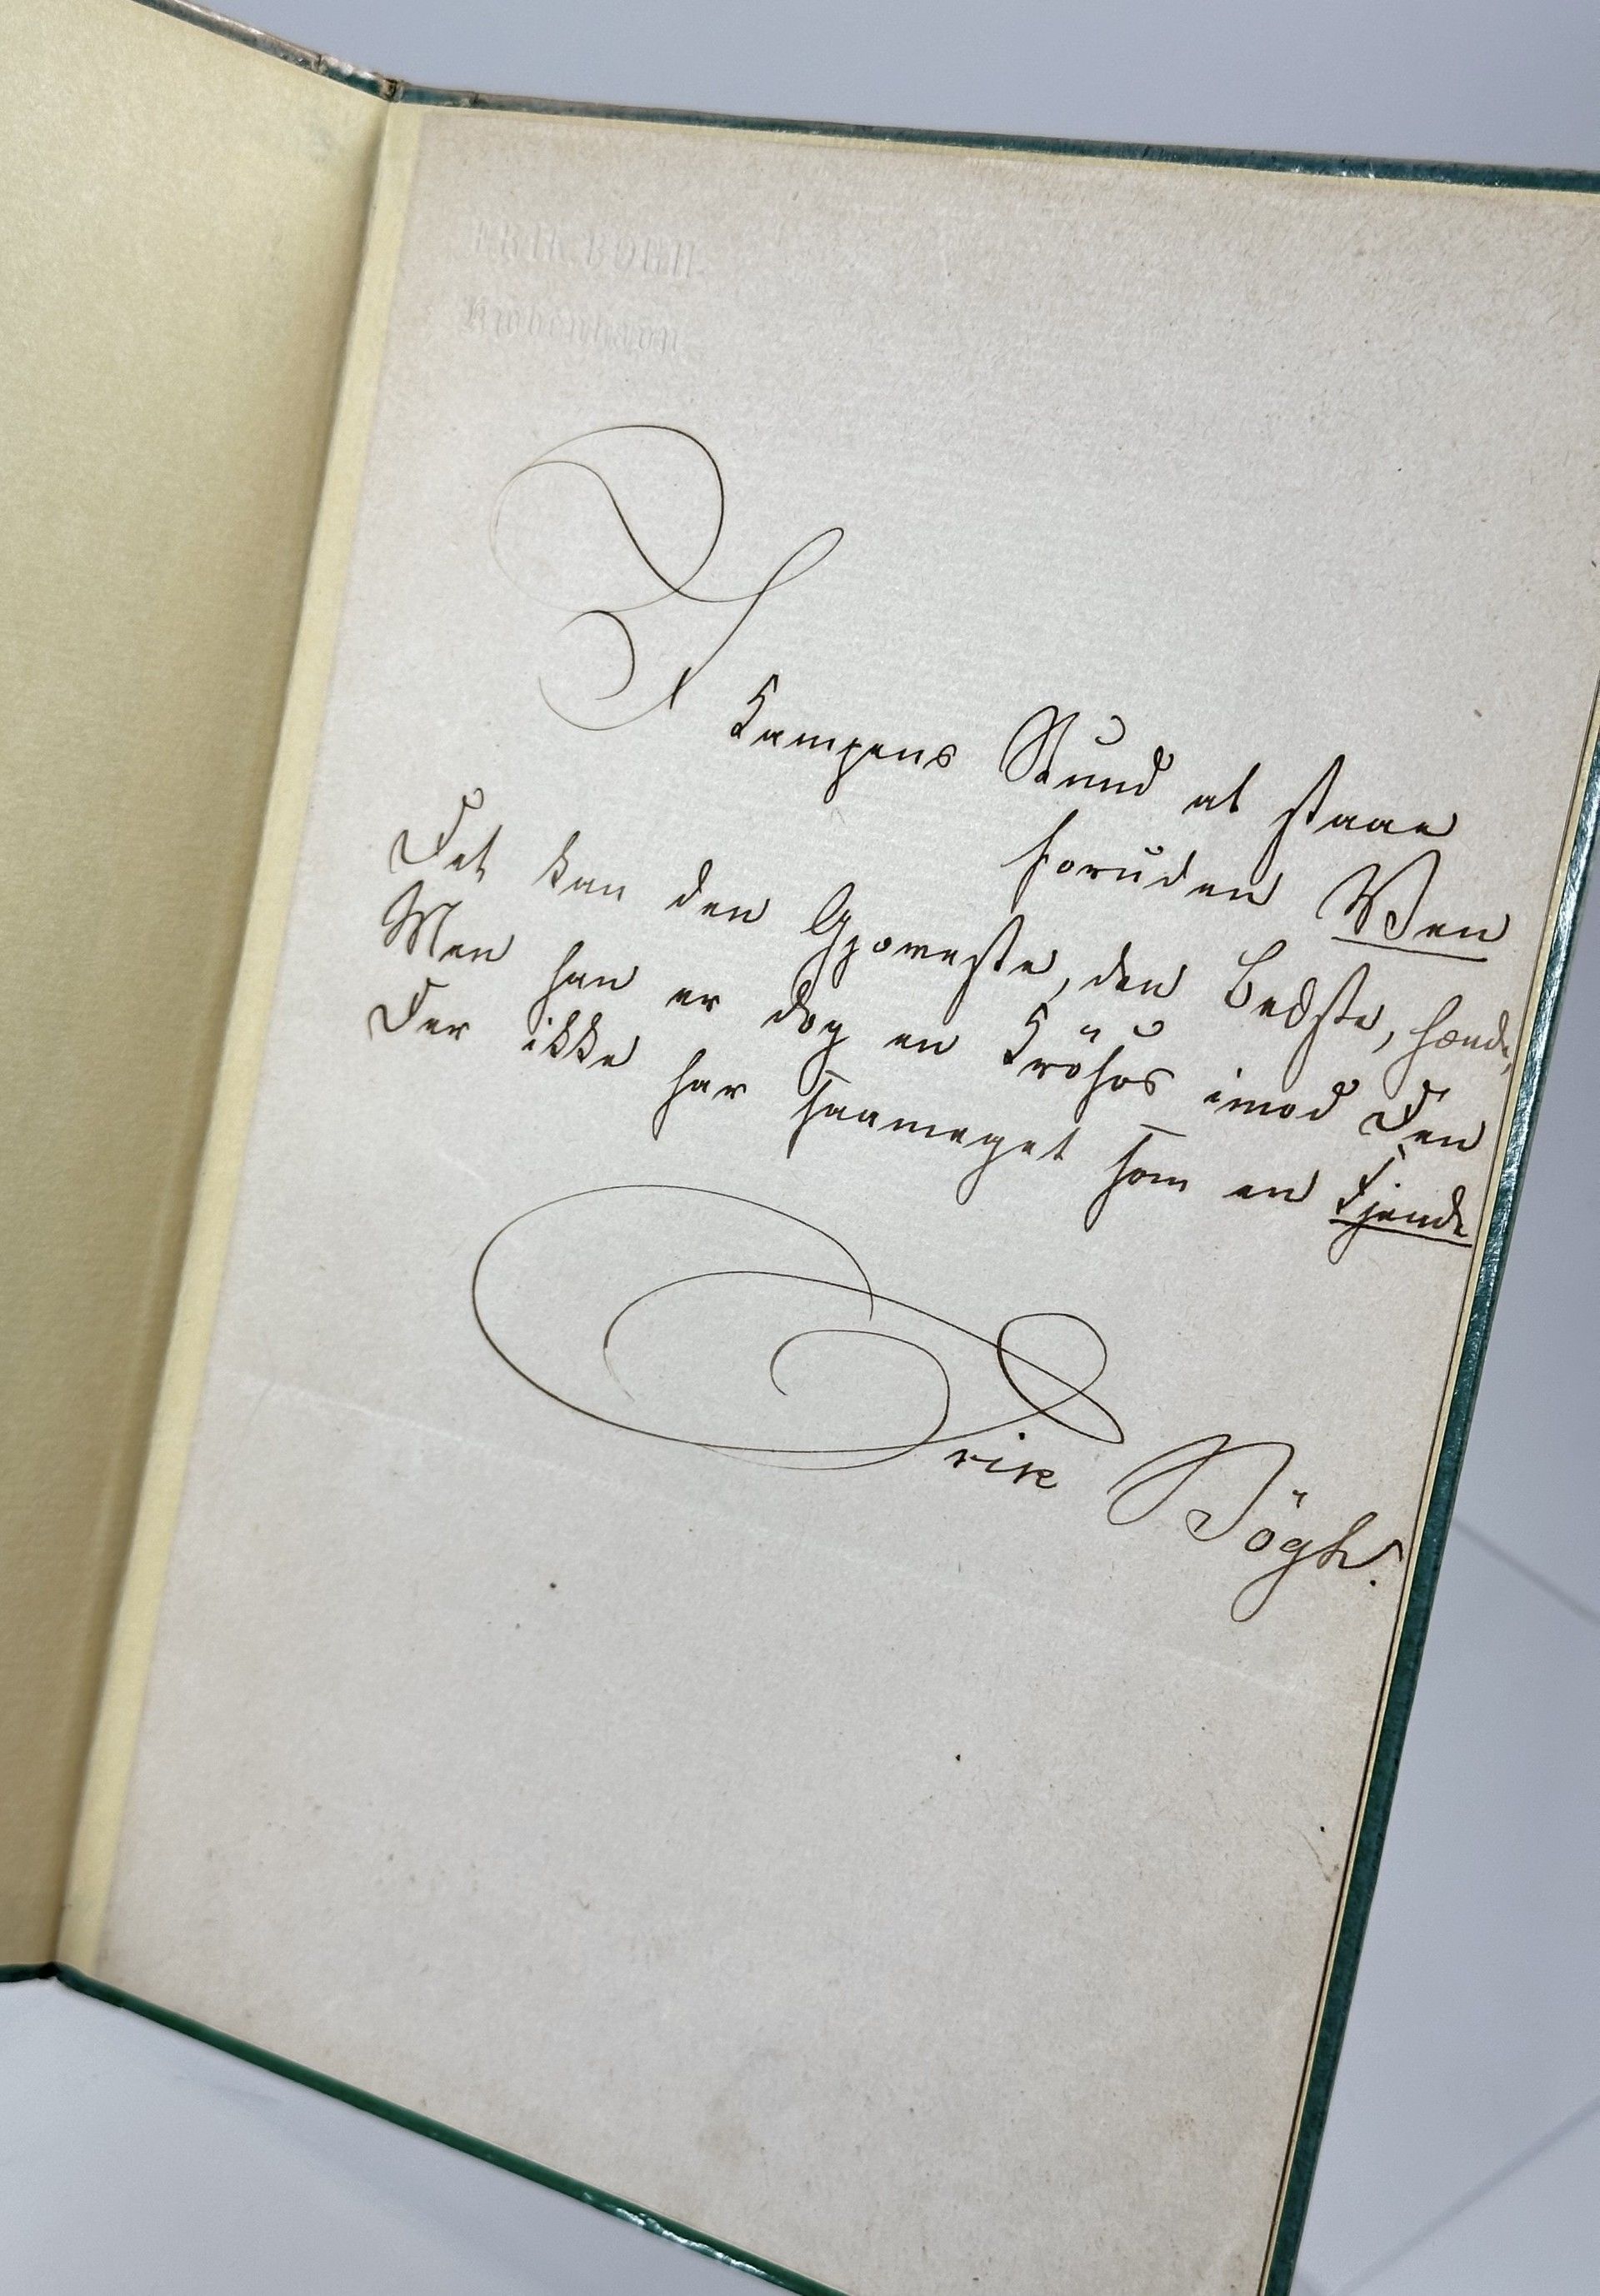 ERIK BØGH
Kiøbenhavn
I Kampens Stund at staae
foruden Ven
Det kan den Gjæveste, den Bedste, hænde,
Men han er dog en Krösos imod Den
Der ikke har saameget som en Fjende
Erik Bögh.